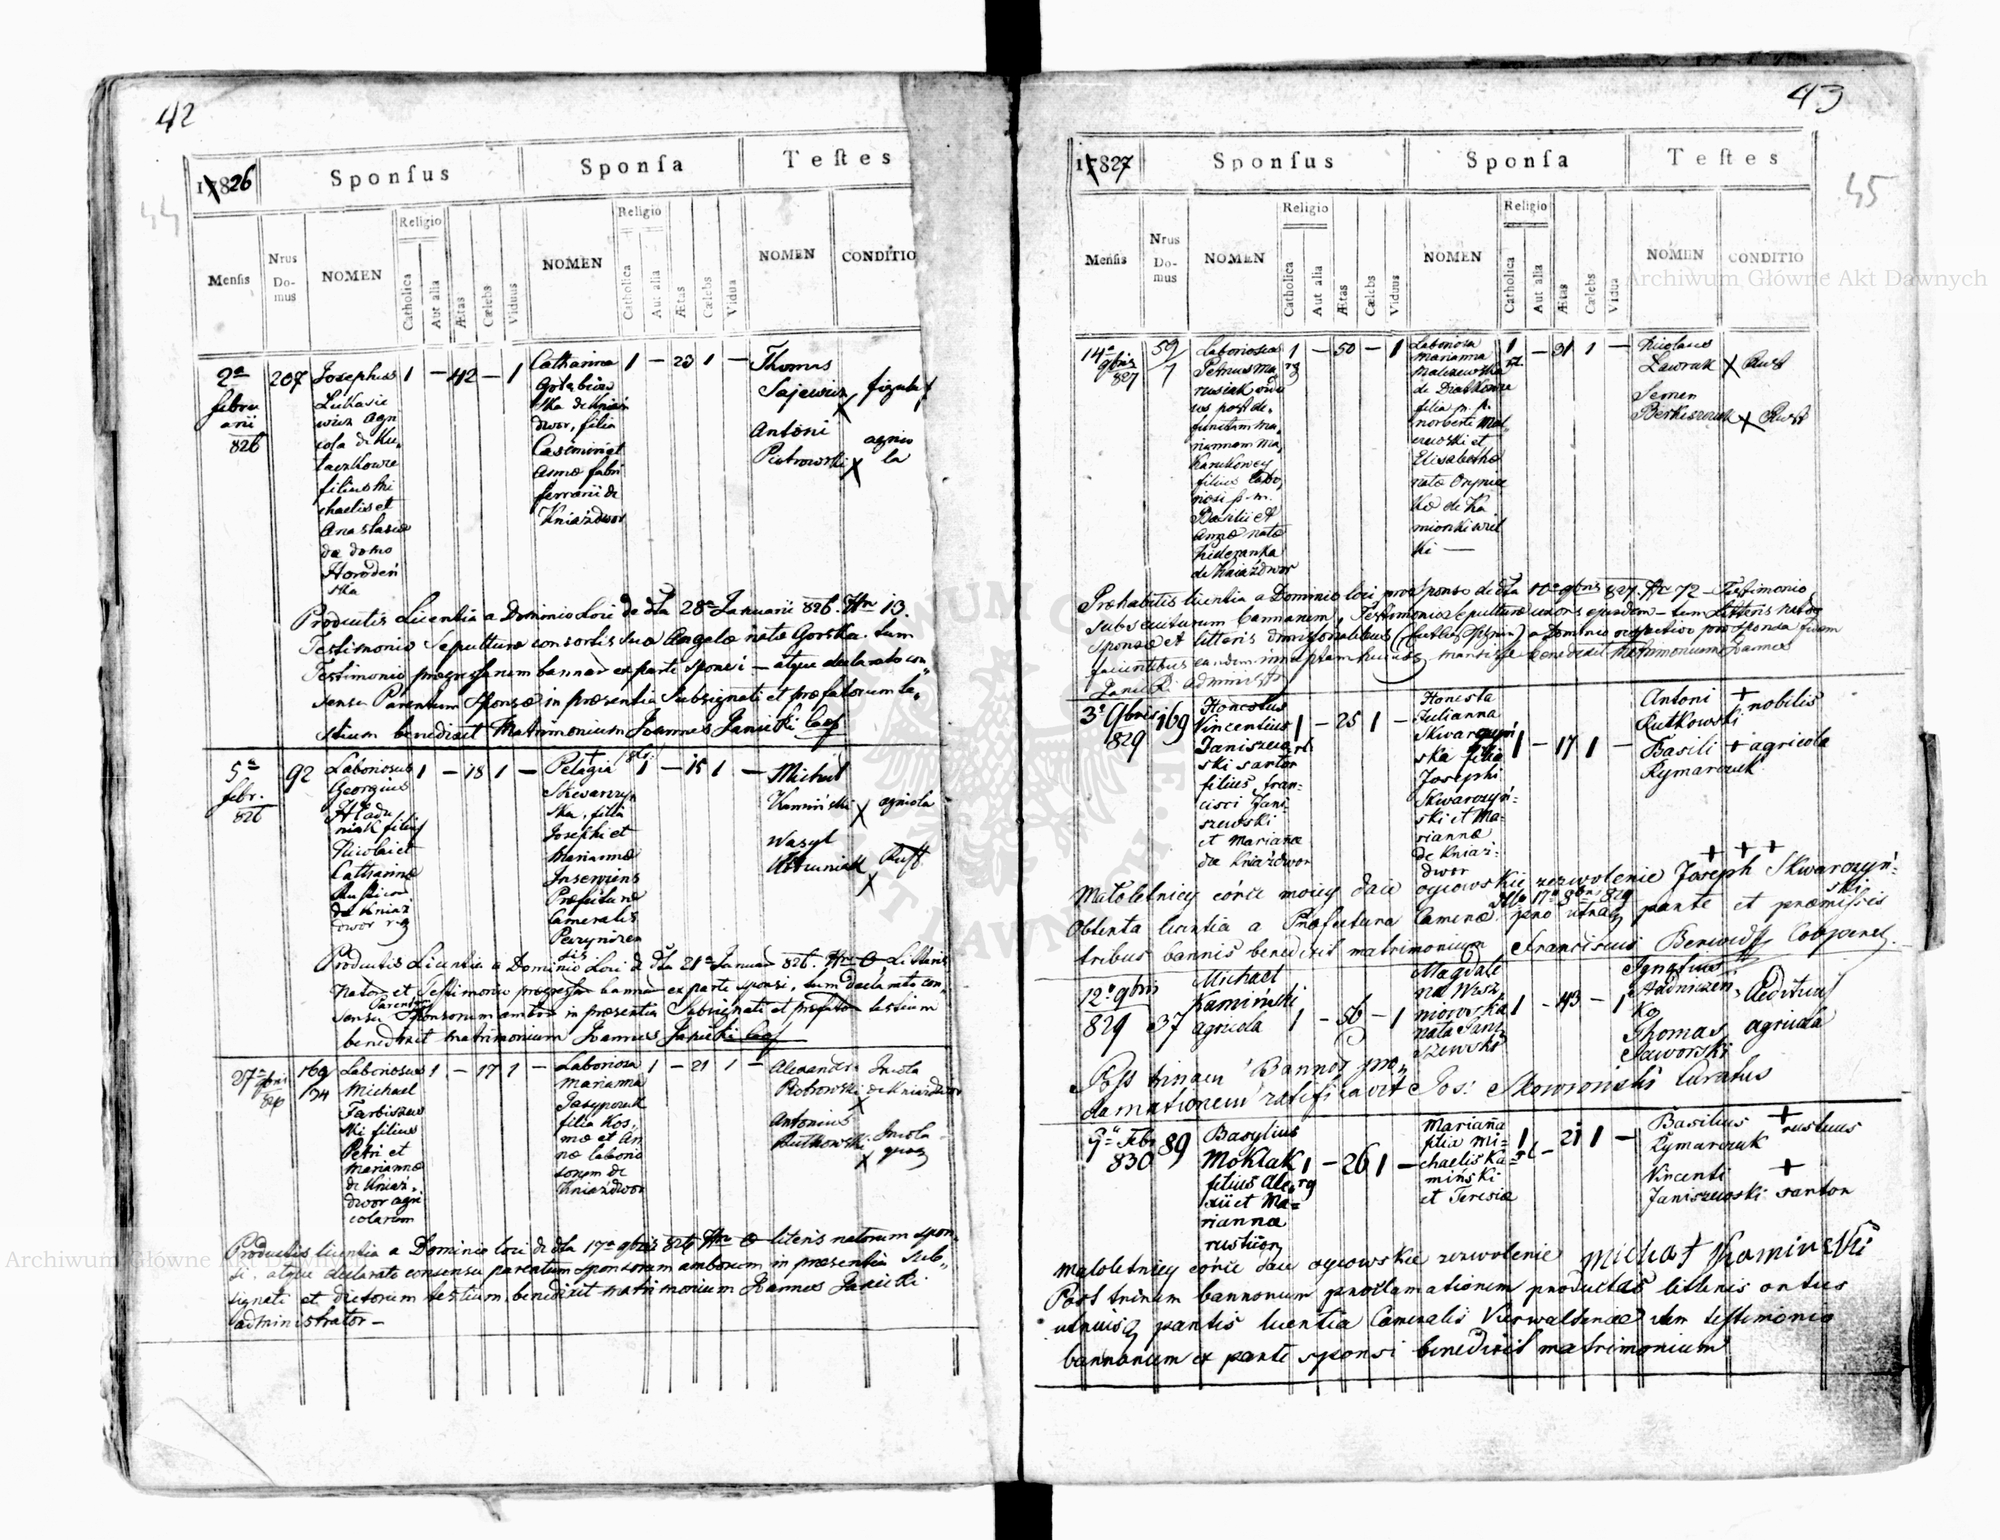 42
1826
Sponsus
Sponsa
Testes
Mensis
Nrus Domus
NOMEN
Religio
Catholica
Aut alia
Ætas
Cælebs
Viduus
NOMEN
Religio
Catholica
Aut alia
Ætas
Cælebs
Vidua
NOMEN
CONDITIO
2a
826
207
Josephus
Lukasie
wicz Agri
cola de Ku
laczkowce
filius Mi
chaelis et
Anastasiæ
de domo
Horodeń
ska
1 — 42 — 1
Catharina
Gołębiow
ska de Kniaź
dwor, filia
Casimiri et
Annæ fabri
ferrarii de
Kniaźdwor
1 — 23 1 —
Thomas
Sajewicz x
Antoni
Piotrowski x
agrico
la
Productis Licentia a Dominio Loci de dto 28a Januarii 826. Nro 13.
Testimonio Sepulturæ consortis suæ Angelæ natæ Gorska. tum
Testimonio progressarum bannor ex parte sponsi — atque declarato con
sensu Parentum Sponsæ in præsentia Subsignati et præfatorum te
stium benedixit Matrimonium Joannes Janicki
5a
febr.
826
92
Laboriosus
Georgius
filius
Nicolai et
Catharinæ
de Kniaź
dwor rg
1 — 18 1 —
Pelagia
Skwarczyń
ska, filia
Josephi et
Mariannæ
Inserviens
Præfecturæ
Cameralis
Peczynizen
sis
1 — 15 1 —
Michał
Kamiński x
Wasyl
x
agricola
Rust
Productis Licentia a Dominio Loci de dto 21a Januar 826. Nro 0. Litteris
nator et Testimonio progressar bannor ex parte sponsi, tum declarato con
sensu Parentum Sponsorum ambor in præsentia Subsignati et præfator testium
benedixit matrimonium Joannes Janicki
27a
169
Laboriosus
Michael
Tarbiszew
ski filius
Petri et
Mariannæ
de Kniaź
dwor agri
colarum
1 — 17 1 —
Laboriosa
Marianna
Jasypczuk
filia Kos
mæ et An
næ laborio
sorum de
Kniaźdwor
1 — 21 1 —
Alexander
Piotrowski x
Antonius
Rutkowski x
Incola
de Kniaźdwor
Incola
Productis licentia a Dominio loci de dto 17a 9bris 826 Nro 0 literis natorum spon
si, atque declarato consensu parentum sponsorum amborum in præsentia sub
signati et dictorum testium, benedixit matrimonium Joannes Janicki
administrator —
43
45
1827
Sponsus
Sponsa
Testes
Mensis
Nrus Domus
NOMEN
Religio
Catholica
Aut alia
Ætas
Cælebs
Viduus
NOMEN
Religio
Catholica
Aut alia
Ætas
Cælebs
Vidua
NOMEN
CONDITIO
14a
9bris
827
59
7
Laboriosus
Petrus Ma
rusiak vidu
us post de
functam Ma
riannam Ma
filius Labo
riosi p. m.
Basilii et
Annæ natæ
de Kniaźdwor
1 rg — 50 — 1
Laboriosa
Marianna
Malczewska
de Diatkowce
filia p. p.
Norberti Mal
czewski et
Elisabethæ
natæ
de Ka
mionki wiel
ki —
1 — 31 1 —
Nicolaus
Ławruk x Rust
Semen
x Rust
Præhabitis licentia a Dominio loci pro Sponso de dto 10a 9bris 827 Nro 72 — Testimonio
subsecutarum bannorum, Testimonio Sepulturæ uxoris ejusdem — tum Litteris nator
Sponsæ et litteris dimissorialibus a Dominio respectivo pro sponsa
benedixit Matrimonium Joannes
Janicki administr
3a 9bris
829
169
Honestus
Vincentius
Janiszew
ski sartor
filius Fran
cisci Jani
szewski
et Mariannæ
de Kniaźdwor
1 — 25 1 —
Honesta
Julianna
Skwarczyń
ska filia
Josephi
Skwarczyń
ski et Ma
riannæ
de Kniaź
dwor
1 — 17 1 —
Antoni + nobilis
Rutkowski
Basili + agricola
Rymarczuk
+ + +
Małoletniey córce moiey daie oycowskie zezwolenie Joseph Skwarczyń
ski
Obtenta licentia a Præfectura Cameræ dto 17a 8bris 829 pro utraq parte et præmissis
tribus bannis benedixit matrimonium Franciscus Cooperat.
12a 9bris
829
37
Michael
Kamiński
agricola
1 — 56 — 1
Magdale
na Wisz
niowska
nata Jani
szewski
1 — 43 — 1
Ignatius
Hadniczen
ko
Ædituus
Thomas agricola
Jaworski
Post trinam Bannor pro
clamationem ratificavit Jos: Skowroński Curatus
9a Febr
830
89
Basylius
Moktak
filius Ale
xii et Ma
riannæ
rusticor
1 rg — 26 1 —
Marianna
filia Mi
chaelis Ka
miński
et Teresiæ
1 rl — 21 1 —
Basilius + rusticus
Rymarczuk
Vincenti +
Janiszewski sartor
Małoletniey córce daie oycowskie zezwolenie Michał Kamiński
Post trinam bannorum proclamationem productis litteris ortus
utriusq partis licentia Cameralis Vicevaldinæ item testimonio
bannorum ex parte sponsi benedixit matrimonium
Archiwum Główne Akt Dawnych
Archiwum Główne Akt Dawnych